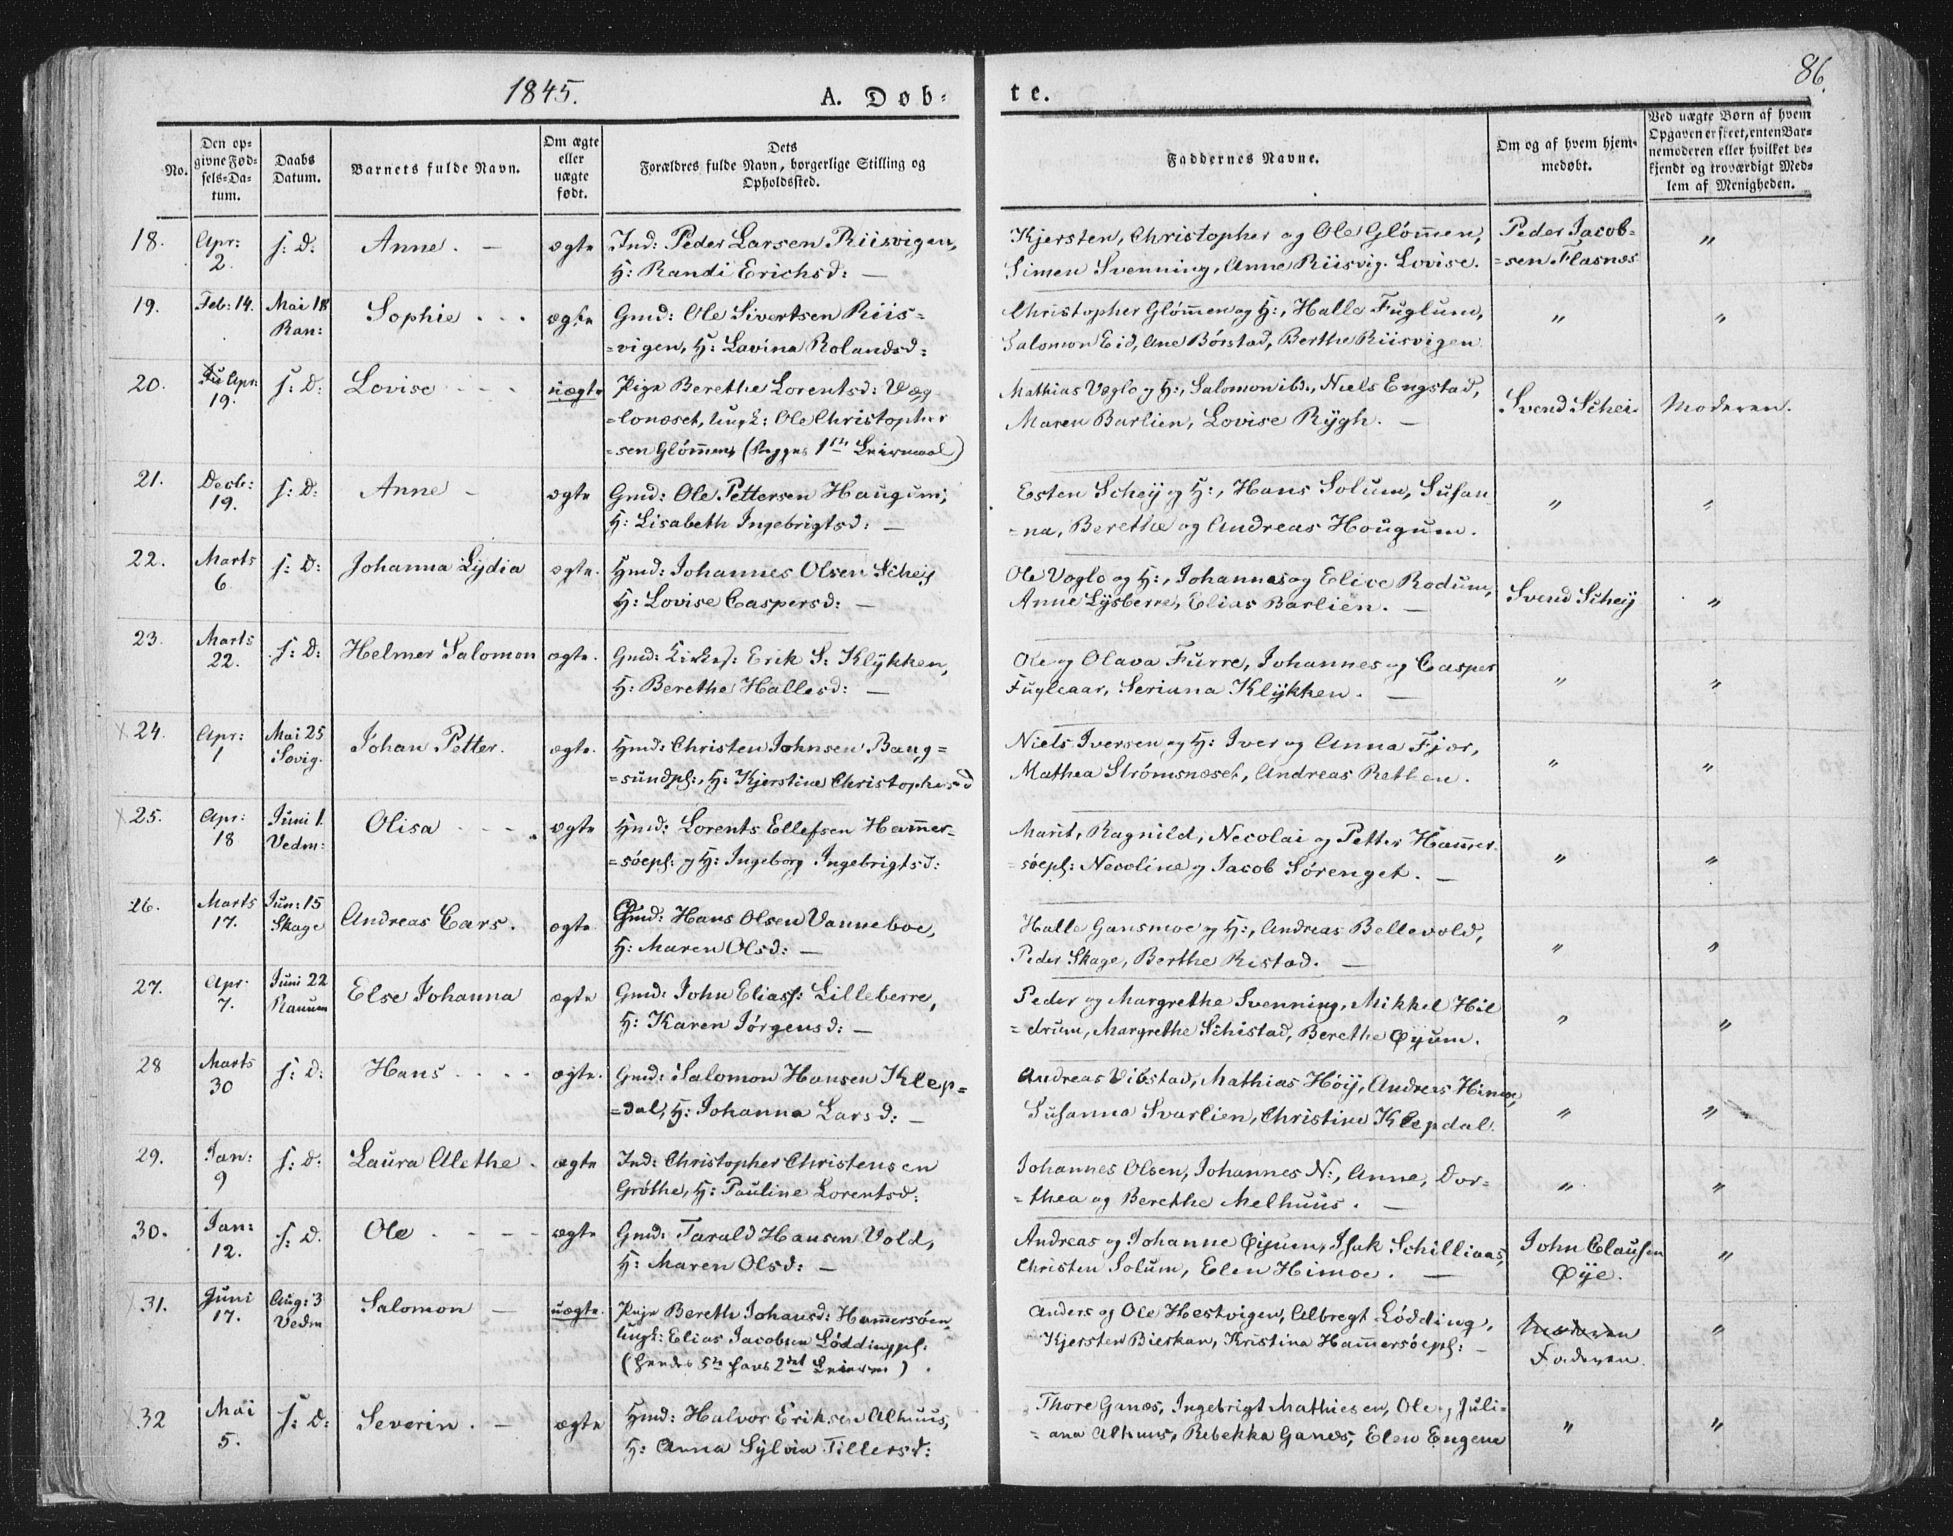 1845.
A. Døb-
te.
86.
No.
Den op-
givne Fød-
sels-Da-
tum.
Daabs
Datum.
Barnets fulde Navn.
Om ægte
eller
uægte
født.
Dets
Forældres fulde Navn, borgerlige Stilling og
Opholdssted.
Faddernes Navne.
Om og af hvem hjem-
medøbt.
Ved uægte Børn af hvem
Opgaven er skeet, enten Bar-
nemoderen eller hvilket be-
kjendt og troværdigt Med-
lem af Menigheden.
18. Apr: 2. s: D: Anne. – ægte Ind: Peder Larsen Riisvigen,
H: Randi Erichsd: –
Kjersten, Christopher og Ole Glömen,
Simen Svenning, Anne Riisvig. Lovise.
Peder Jacob=
=sen Flasnæs
"
19. Feb: 14. Mai 18 Ran: Sophie . . . ægte Gmd: Ole Sivertsen Riis=
=vigen, H: Lavina Rolandsd:
Christopher Glömen og H:, Halle Fuglum,
Salomon Eid, Ane Börstad, Berthe Riisvigen
" "
20. Apr: 19. s: D: Lovise uægte Pige Berethe Lorentsd: Væg
=lonæset, Ungk: Ole Christopher
=sen Glömen, (Begges 1ste Leiermaal)
Mathias Væglo og H:, Salomon ibd., Niels Engstad,
Maren Barlien, Lovise Rÿgh. –
Svend Schei
Moderen.
21. Decb: 19. s: D: Anne – ægte Gmd: Ole Pettersen Haugum,
H: Lisabeth Ingebrigtsd: –
Esten Scheÿ og H:, Hans Solum, Susan
=na, Berethe og Andreas Hougum.
" "
22. Marts 6 s: D: Johanna Lÿdia ægte. Hmd: Johannes Olsen Scheÿ
H: Lovise Caspersd: –
Ole Voglo og H:, Johannes og Elice Rodum,
Anne Lÿsberre, Elias Barlien. –
Svend Scheÿ
"
23. Marts 22. s: D: Helmer Salomon ægte. Gmd: Kirkes: Erik S: Klÿkken,
H: Berethe Hallesd: –
Ole og Olava Furre, Johannes og Casper
Fugleaar, Seriana Klÿkken. –
" "
24. Apr: 1 Mai 25 Sævig. Johan Petter. ægte. Hmd: Christen Johnsen Bang=
=sundpl:, H: Kjerstina Christophersd
Niels Iversen og H: Iver og Anna Fjær,
Mathea Strömsnæset, Andreas Retten.
" "
25. Apr: 18 Juni 1. Vedm: Olisa . . . ægte Hmd: Lorents Ellefsen Hamer=
=söepl: og H: Ingeborg Ingebrigtsd:
Marit, Ragnild, Necolai og Petter Hamer
=söepl: Necoline og Jacob Sörenget. –
" "
26. Marts 17. Jun: 15 Skage Andreas Cars. ægte Gmd: Hans Olsen Vanneboe,
H: Maren Olsd: –
Halle Gansmoe og H:, Andreas Bellevold,
Peder Skage, Berthe Restad. –
" "
27. Apr. 7. Juni 22 Ranum Else Johanna ægte Gmd: John Eliass: Lilleberre,
H: Karen Jörgensd: –
Peder og Margrethe Svenning, Mikkel Hil
=drum, Margrethe Schistad, Berethe Öyum.
" "
28 Marts 30 s: D: Hans . . . . ægte. Gmd: Salomon Hansen Klep=
=dal, H: Johanna Larsd: –
Andreas Vibstad, Mathias Höÿ, Andreas Himoe,
Susanna Svarlien, Christine Klepdal.
" "
29. Jan: 9 s: D: Laura Alethe. ægte Ind: Christopher Christensen
Gröthe, H: Pauline Lorentsd:
Johannes Olsen, Johannes N:, Anne, Dor=
=thea og Berethe Melhuus. –
" "
30. Jan: 12. s: D. Ole . . . ægte Gmd: Tarald Hansen Vold,
H: Maren Olsd: –
Andreas og Johanne Öÿum, Isak Schilliaas,
Christen Solum, Elen Himoe. –
John Clausen
Öÿe.
"
31. Juni 17. Aug: 3 Vedm Salomon – uægte. Pige Bereth Johansd: Hamersöen,
Ungk: Elias Jacobsen Löddingpl:
(Hendes 5te hans 2det Leierm)
Anders og Ole Hestvigen, Albregt Lödding,
Kjersten Bierkan, Kristina Hamersöepl: –
Moderen
Faderen.
"
32 Mai 5. s: D: Severin. – ægte Hmd: Halvor Eriksen Alhuus,
H: Anna Sÿlvia Tillersd:
Thore Ganæs, Ingebrigt Mathiesen, Ole og Juli=
=ana Alhuus, Rebekka Ganæs, Elen Engene
" "